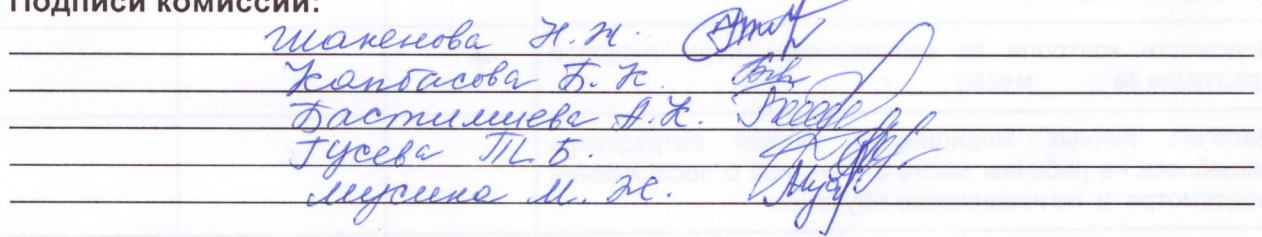 Подписи комиссии:
Шакенова Н.Ж.
Капбасова Б.К.
Бастимиева А.К.
Гусева Т.Б.
Мусина М.Ж.